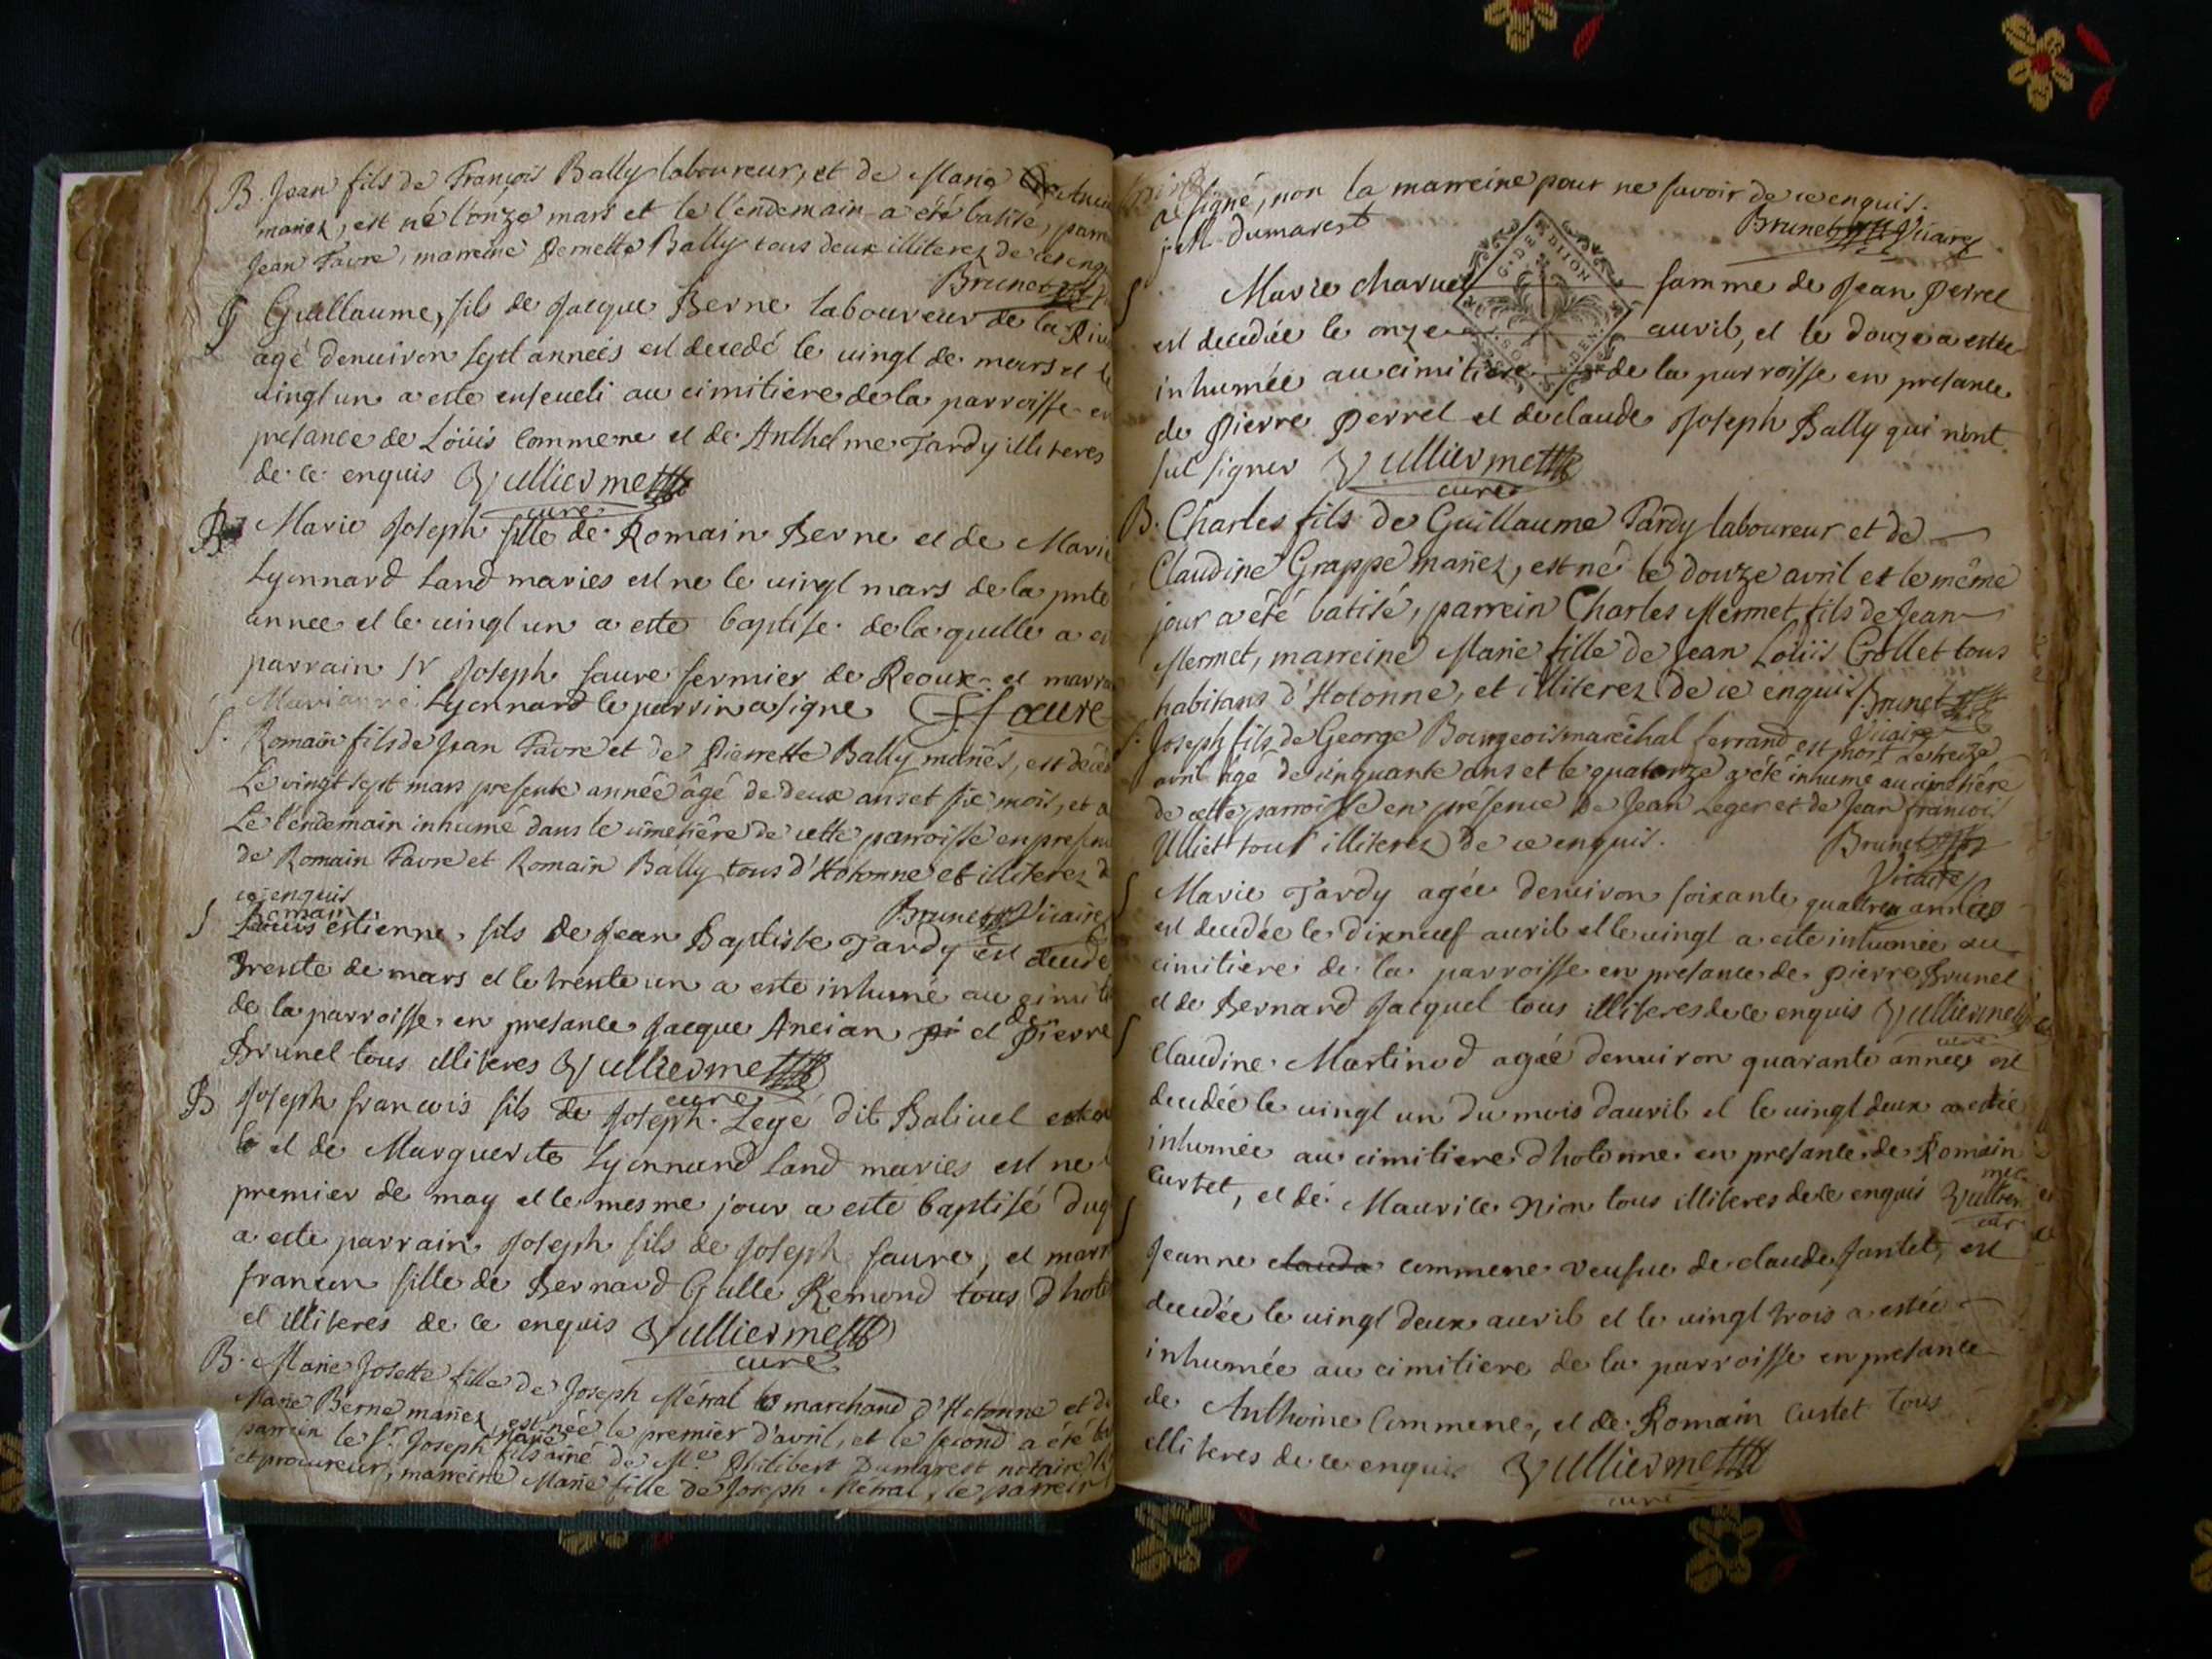 B. Jean fils de François Bally laboureur, et de Marie
mariez, est né l'onze mars et le l'endemain a été batisé, parr
Jean Favre, marreine Pernette Bally tous deux illiterez de ce enq
Brunet
Guillaume, fils de Jacque Berne laboureur de la
agé denuiron sept anneés est decedé le uingt de mars et le
uingt un a esté enseueli au cimitiere de la parroisse en
presance de Loüis Commene et de Anthelme Tardy illiteres
de ce enquis Vulliermet
curé
B Marie Joseph fille de Romain Berne et de Marie
Lyonnard Land maries est ne le uingt mars de la pnte
année et le uingt un a esté baptise de la quelle a e
parrain Sr Joseph faure fermier de Reoux et marra
Marianne Lyonnard le parrin a signe faure
S. Romain fils de Jean Favre et de Pierrette Bally mariés, est décé
Le vingt sept mars presente année âgé de deux ans et six mois, et a
Le l'endemain inhumé dans le cimetiére de cette parroisse en presen
de Romain Favre et Romain Bally tous d'Hotonne et illiterez d
ce enquis
Brunet Vicaire
Romain
S Louis estienne fils de Jean Baptiste Tardy est decedé
trente de mars et le trente un a esté inhumé au cimiti
de la parroisse en presance Jacque Ancian et de Pierre
Brunet tous illiteres Vulliermet
curé
B Joseph francois fils de Joseph Legé dit Baliuet
et de Marguerite Lyonnard Land maries est ne
premier de may et le mesme jour a esté baptisé duq
a esté parrain Joseph fils de Joseph faure, et marr
francon fille de Bernard Gulle Remond tous dhoto
et illiteres de ce enquis Vulliermet
curé
B. Marie Josette fille de Joseph Métral marchand d'Hotonne et de
Marie Berne mariez, est née le premier d'avril, et le second a été ba
parrein le Sr. Joseph Marie fils aîné de Me. Philibert Dumarest notaire
et procureur, marreine Marie fille de Joseph Métral, le parrein
a signé, non la marreine pour ne savoir de ce enquis.
j. M. Dumarest
Brunet Vicaire
G. DE DIJON
SOLS DEN
S Marie charuet famme de Jean Perret
est decedée le onze auril, et le douze a estée
inhumée au cimitiere de la parroisse en presance
de Pierre Perret et de claude Joseph Bally qui n'ont
sut signer Vulliermet
curé
B. Charles fils de Guillaume Tardy laboureur et de
Claudine Grappe mariez, est né le douze avril et le même
jour a été batisé, parrein Charles Mermet fils de Jean
Mermet, marreine Marie fille de Jean Loüis Collet tous
habitans d'Hotonne, et illiterez de ce enquis Brunet
Vicaire
S. Joseph fils de George Bourgeois maréchal ferrand est mort Le treize
avril âgé de cinquante ans et le quatorze a été inhumé au cimetiére
de cette parroisse en présence de Jean Leger et de Jean francois
Ulliet tous illiterez de ce enquis.
Brunet
Vicaire
S Marie Tardy agée denuiron soixante quattre années
est decedée le dixneuf auril et le uingt a esté inhumée au
cimitiere de la parroisse en presance de Pierre Brunet
et de Bernard Jacquet tous illiteres de ce enquis Vulliermet
curé
S Claudine Martinod agée denuiron quarante années est
decedée le uingt un du mois dauril et le uingt deux a estée
inhumée au cimitiere dhotonne en presante de Romain
Curtet, et de Maurice Nion tous illiteres de ce enquis Vullier
met
cur
S Jeanne clauda commene veufue de claude Jantet, est
decedée le uingt deux auril et le uingt trois a estée
inhumée au cimitiere de la parroisse en presance
de Anthoine Commene, et de Romain Curtet tous
illiteres de ce enquis Vulliermet
curé